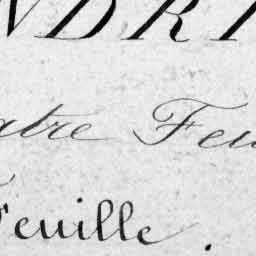 NDRI
atre Feu
Feuille.